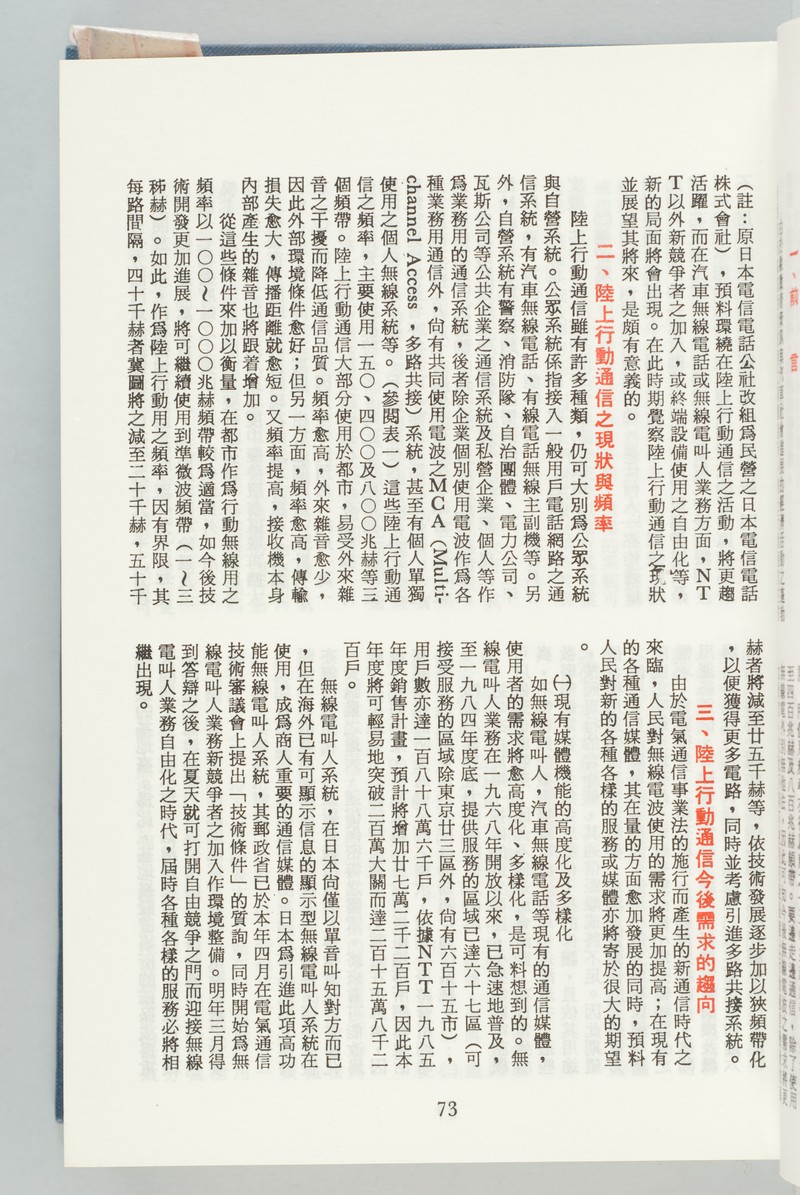 (註：原日本電信電話公社改組爲民營之日本電信電話
株式會社)，預料環繞在陸上行動通信之活動，將更趨
活躍，而在汽車無線電話或無線電叫人業務方面，NT
T以外新競爭者之加入，或終端設備使用之自由化等，
新的局面將會出現。在此時期覺察陸上行動通信之現狀
並展望其將來，是頗有意義的。
二、陸上行動通信之現狀與頻率
陸上行動通信雖有許多種類，仍可大別爲公眾系統
與自營系統。公眾系統係指接入一般用戶電話網路之通
信系統，有汽車無線電話、有線電話無線主副機等。另
外，自營系統有警察、消防隊、自治團體、電力公司、
瓦斯公司等公共企業之通信系統及私營企業、個人等作
爲業務用的通信系統，後者除企業個別使用電波作爲各
種業務用通信外，尙有共同使用電波之MCA(Multi-
channel Access，多路共接)系統，甚至有個人單獨
使用之個人無線系統等。(參閱表一)這些陸上行動通
信之頻率，主要使用一五〇、四〇〇及八〇〇兆赫等三
個頻帶。陸上行動通信大部分使用於都市，易受外來雜
音之干擾而降低通信品質。頻率愈高，外來雜音愈少，
因此外部環境條件愈好；但另一方面，頻率愈高，傳輸
損失愈大，傳播距離就愈短。又頻率提高，接收機本身
內部產生的雜音也將跟着增加。
從這些條件來加以衡量，在都市作爲行動無線用之
頻率以一〇〇～一〇〇〇兆赫頻帶較爲適當，如今後技
術開發更加進展，將可繼續使用到準微波頻帶(一～三
秭赫)。如此，作爲陸上行動用之頻率，因有界限，其
每路間隔，四十千赫者冀圖將之減至二十千赫，五十千
赫者將減至廿五千赫等，依技術發展逐步加以狹頻帶化
，以便獲得更多電路，同時並考慮引進多路共接系統。
三、陸上行動通信今後需求的趨向
由於電氣通信事業法的施行而產生的新通信時代之
來臨，人民對無線電波使用的需求將更加提高；在現有
的各種通信媒體，其在量的方面愈加發展的同時，預料
人民對新的各種各樣的服務或媒體亦將寄於很大的期望
。
㈠現有媒體機能的高度化及多樣化
如無線電叫人，汽車無線電話等現有的通信媒體，
使用者的需求將愈高度化、多樣化，是可料想到的。無
線電叫人業務在一九六八年開放以來，已急速地普及，
至一九八四年度底，提供服務的區域已達六十七區(可
接受服務的區域除東京廿三區外，尙有六百十五市)，
用戶數亦達一百八十八萬六千戶，依據NTT一九八五
年度銷售計畫，預計將增加廿七萬二千二百戶，因此本
年度將可輕易地突破二百萬大關而達二百十五萬八千二
百戶。
無線電叫人系統，在日本尙僅以單音叫知對方而已
，但在海外已有可顯示信息的顯示型無線電叫人系統在
使用，成爲商人重要的通信媒體。日本爲引進此項高功
能無線電叫人系統，其郵政省已於本年四月在電氣通信
技術審議會上提出「技術條件」的質詢，同時開始爲無
線電叫人業務新競爭者之加入作環境整備。明年三月得
到答辯之後，在夏天就可打開自由競爭之門而迎接無線
電叫人業務自由化之時代，屆時各種各樣的服務必將相
繼出現。
73